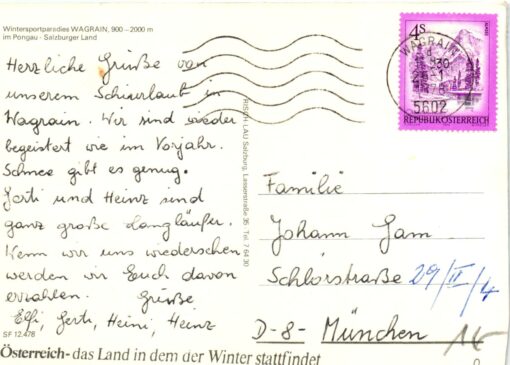 Wintersportparadies WAGRAIN, 900 – 2000 m
im Pongau - Salzburger Land
Herzliche Grüße von
unserem Schiurlaub in
Wagrain. Wir sind wieder
begeistert wie im Vorjahr.
Schnee gibt es genug.
Gerti und Heinz sind
ganz große Langläufer.
Wenn wir uns wiedersehen
werden wir Euch davon
erzählen. Grüße
Elfi, Gerti, Heini, Heinz
SF 12.478
Österreich - das Land in dem der Winter stattfindet
RISCH-LAU Salzburg, Lasserstraße 35 Tel. 7 64 30
WAGRAIN
5602
4S
REPUBLIK ÖSTERREICH
Familie
Johann
Schlörstraße 29/II/4
D-8- München